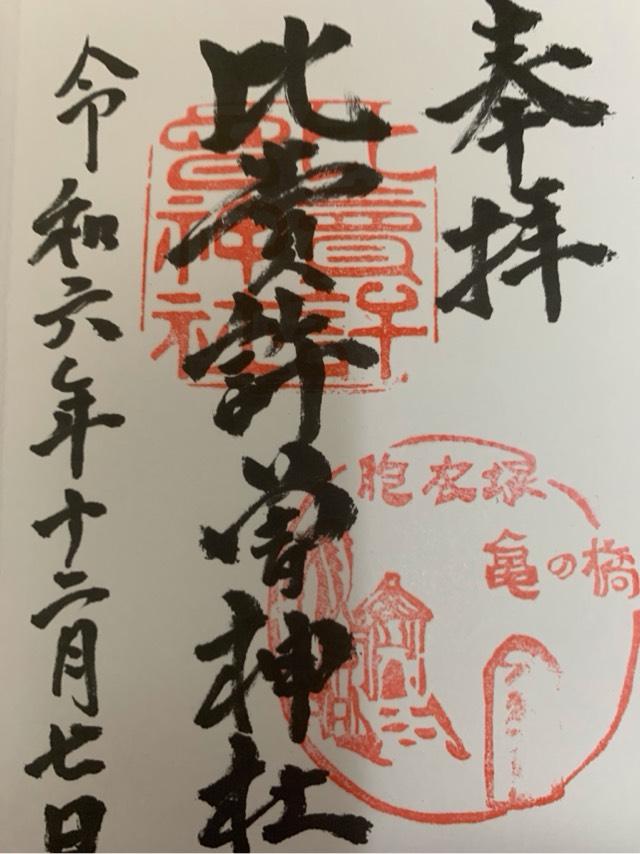 奉拝
比賣許曽神社
比賣許曽神社
胞衣塚
亀の橋
令和六年十二月七日